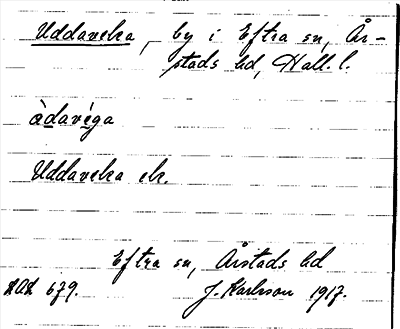 Uddaveka, by i Eftra sn, År-
stads hd, Hall. l.
àdavéga
Uddaveka ek.
Eftra sn, Årstads hd
679.
J. Karlsson 1917.